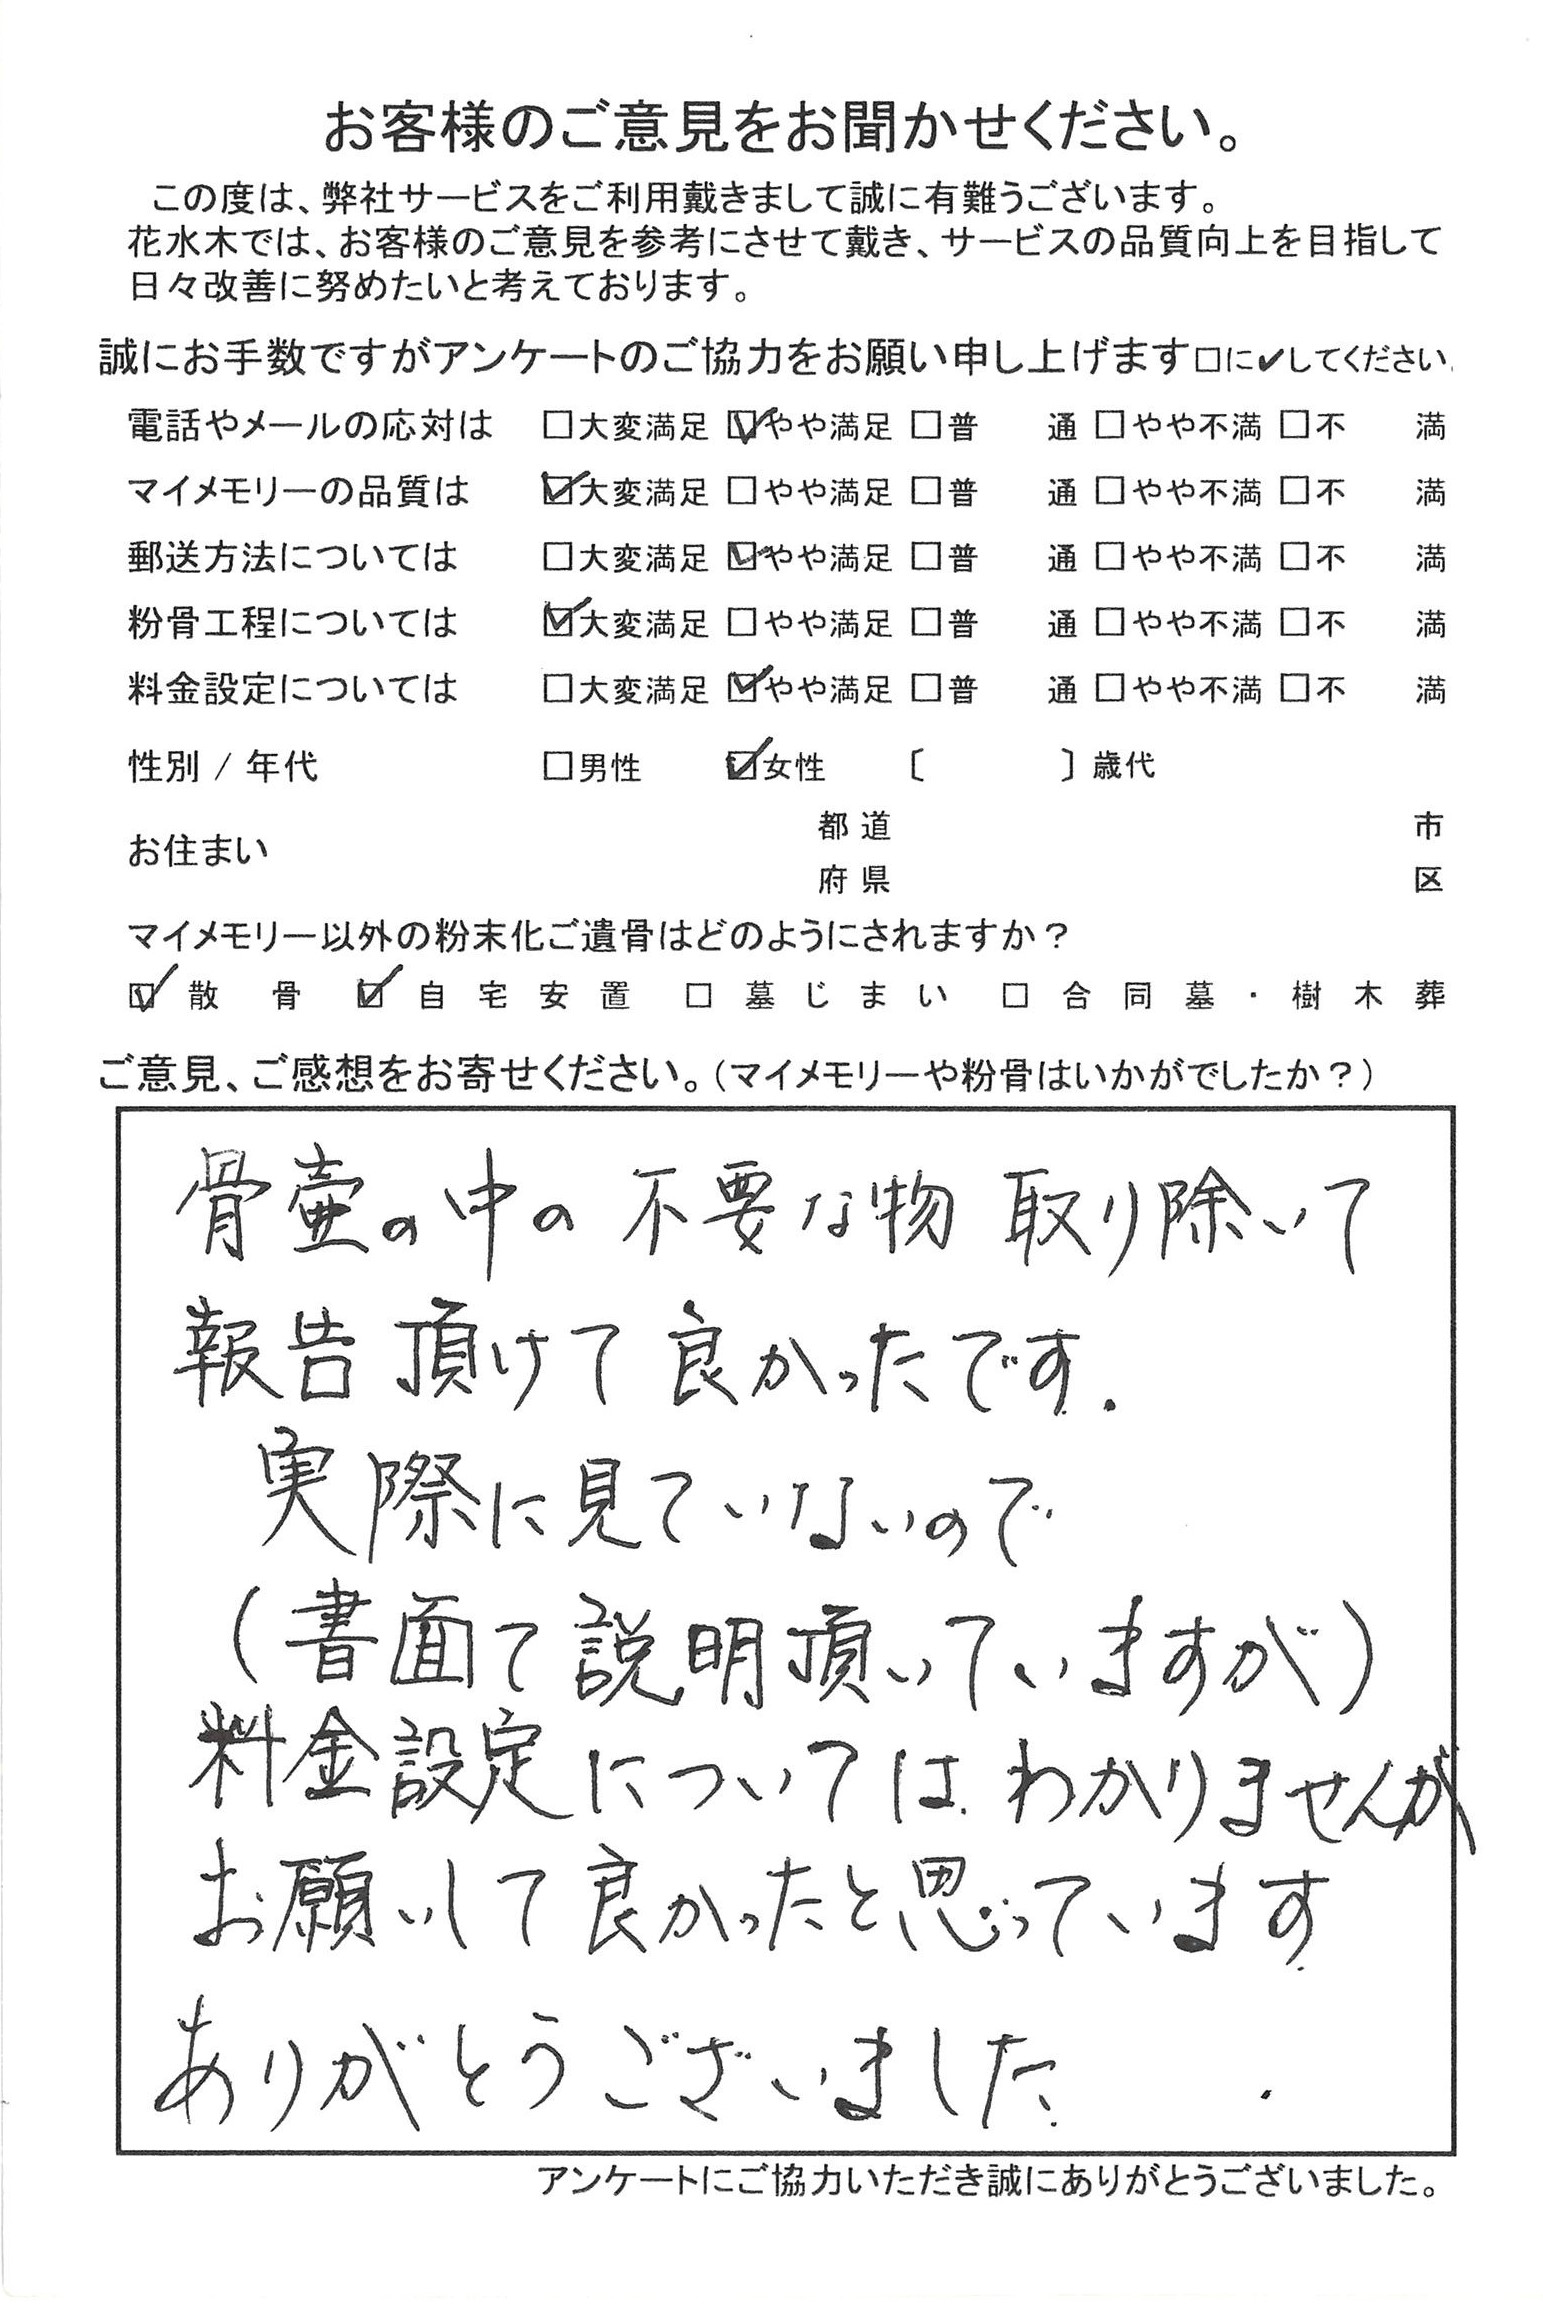 お客様のご意見をお聞かせください。
この度は、弊社サービスをご利用戴きまして誠に有難うございます。
花水木では、お客様のご意見を参考にさせて戴き、サービスの品質向上を目指して
日々改善に努めたいと考えております。
誠にお手数ですがアンケートのご協力をお願い申し上げます□に✔してください.
電話やメールの応対は □大変満足 ☑やや満足 □普 通 □やや不満 □不 満
マイメモリーの品質は ☑大変満足 □やや満足 □普 通 □やや不満 □不 満
郵送方法については □大変満足 ☑やや満足 □普 通 □やや不満 □不 満
粉骨工程については ☑大変満足 □やや満足 □普 通 □やや不満 □不 満
料金設定については □大変満足 ☑やや満足 □普 通 □やや不満 □不 満
性別 / 年代 □男性 ☑女性 〔 〕歳代
お住まい 都道府県 市区
マイメモリー以外の粉末化ご遺骨はどのようにされますか？
☑ 散骨 ☑ 自宅安置 □ 墓じまい □ 合同墓・樹木葬
ご意見、ご感想をお寄せください。（マイメモリーや粉骨はいかがでしたか？）
骨壷の中の不要な物 取り除いて
報告頂けて良かったです.
実際に見ていないので
(書面で説明頂いていますが)
料金設定については わかりませんが
お願いして良かったと思っています
ありがとうございました.
アンケートにご協力いただき誠にありがとうございました。